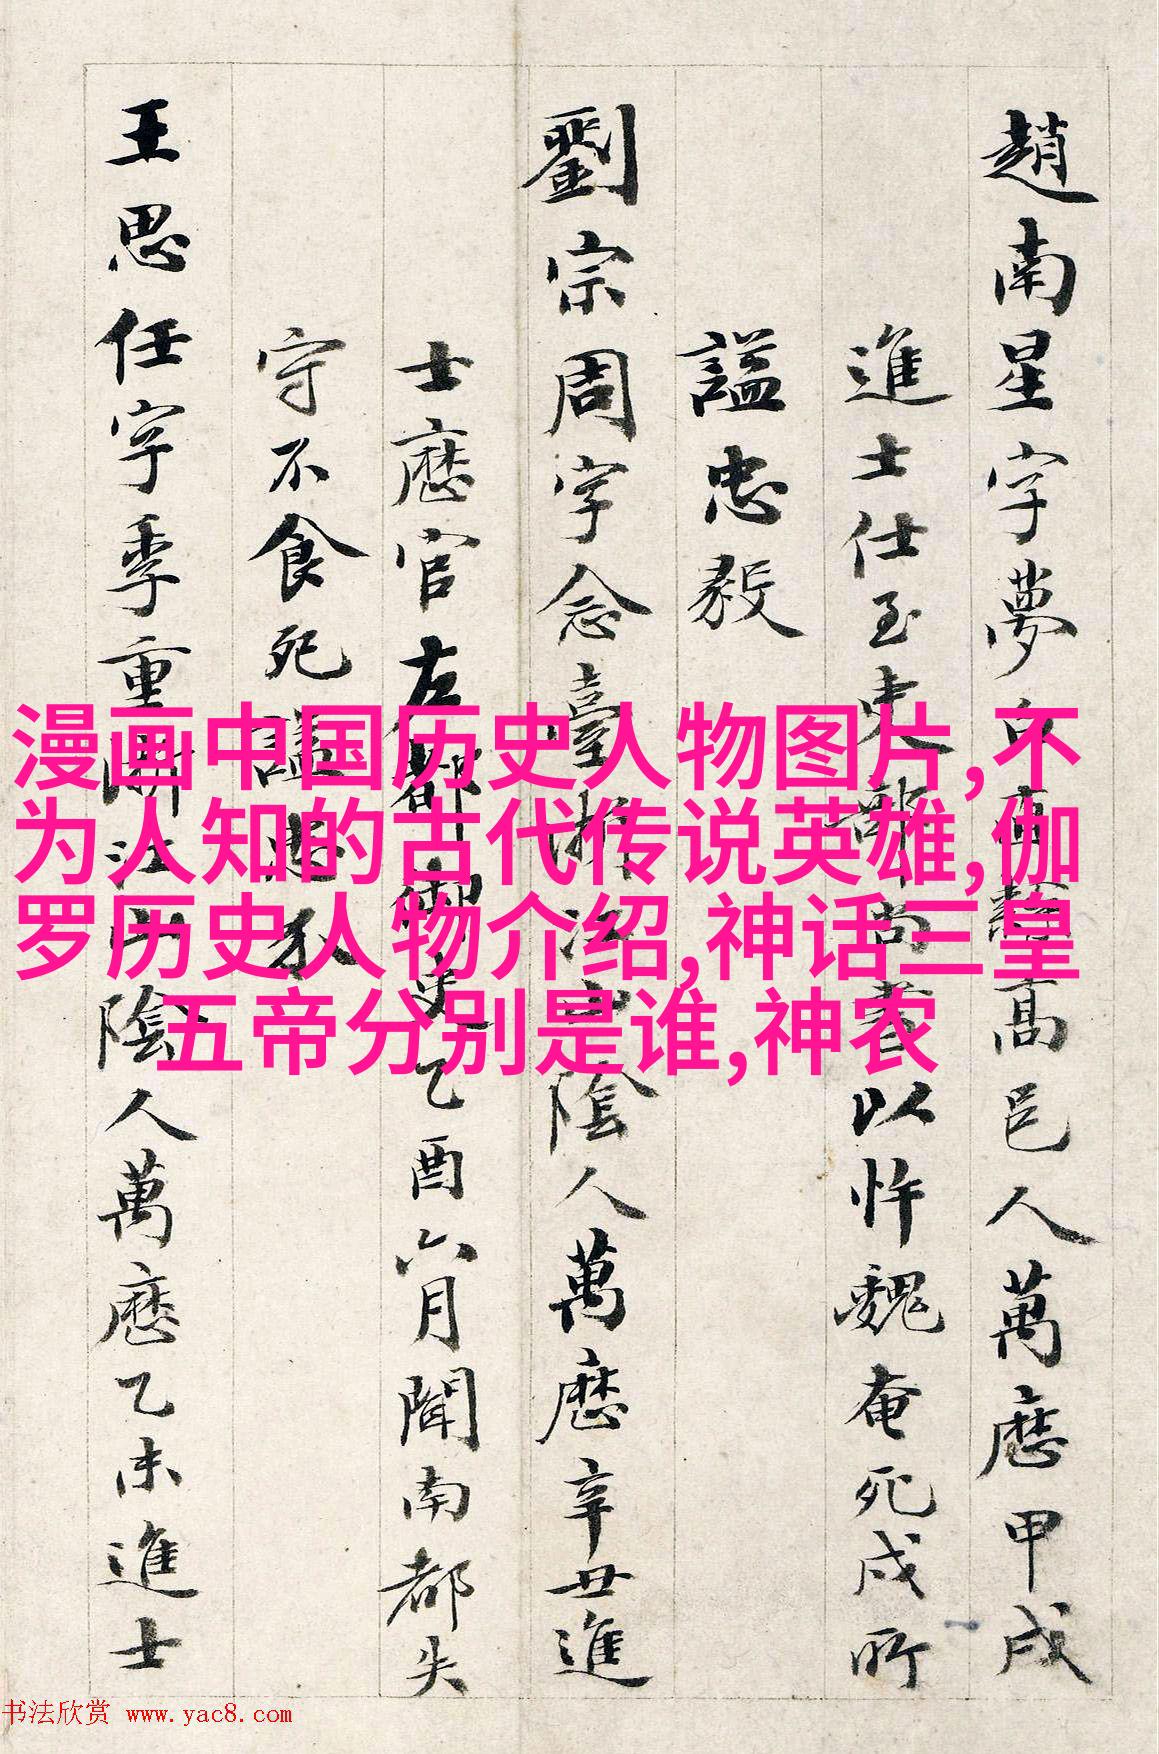 趙南星字夢白直隸高邑人萬曆甲戌
進士仕至吏部尚書以忤魏奄死戍所
謚忠毅
劉宗周字念臺浙江山陰人萬曆辛丑進
士歷官左都御史乙酉六月聞南都失
守不食死謚忠
王思任字季重浙江山陰人萬曆乙未進士
漫画中国历史人物图片,不
为人知的古代传说英雄,伽
罗历史人物介绍,神话三皇
五帝分别是谁,神农
书法欣赏 www.yac8.com